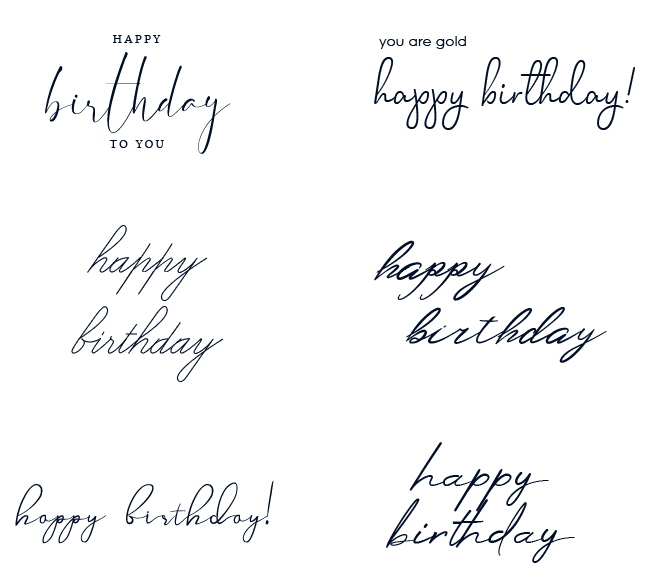 HAPPY
birthday
TO YOU
you are gold
happy birthday!
happy
birthday
happy
birthday
happy birthday!
happy
birthday